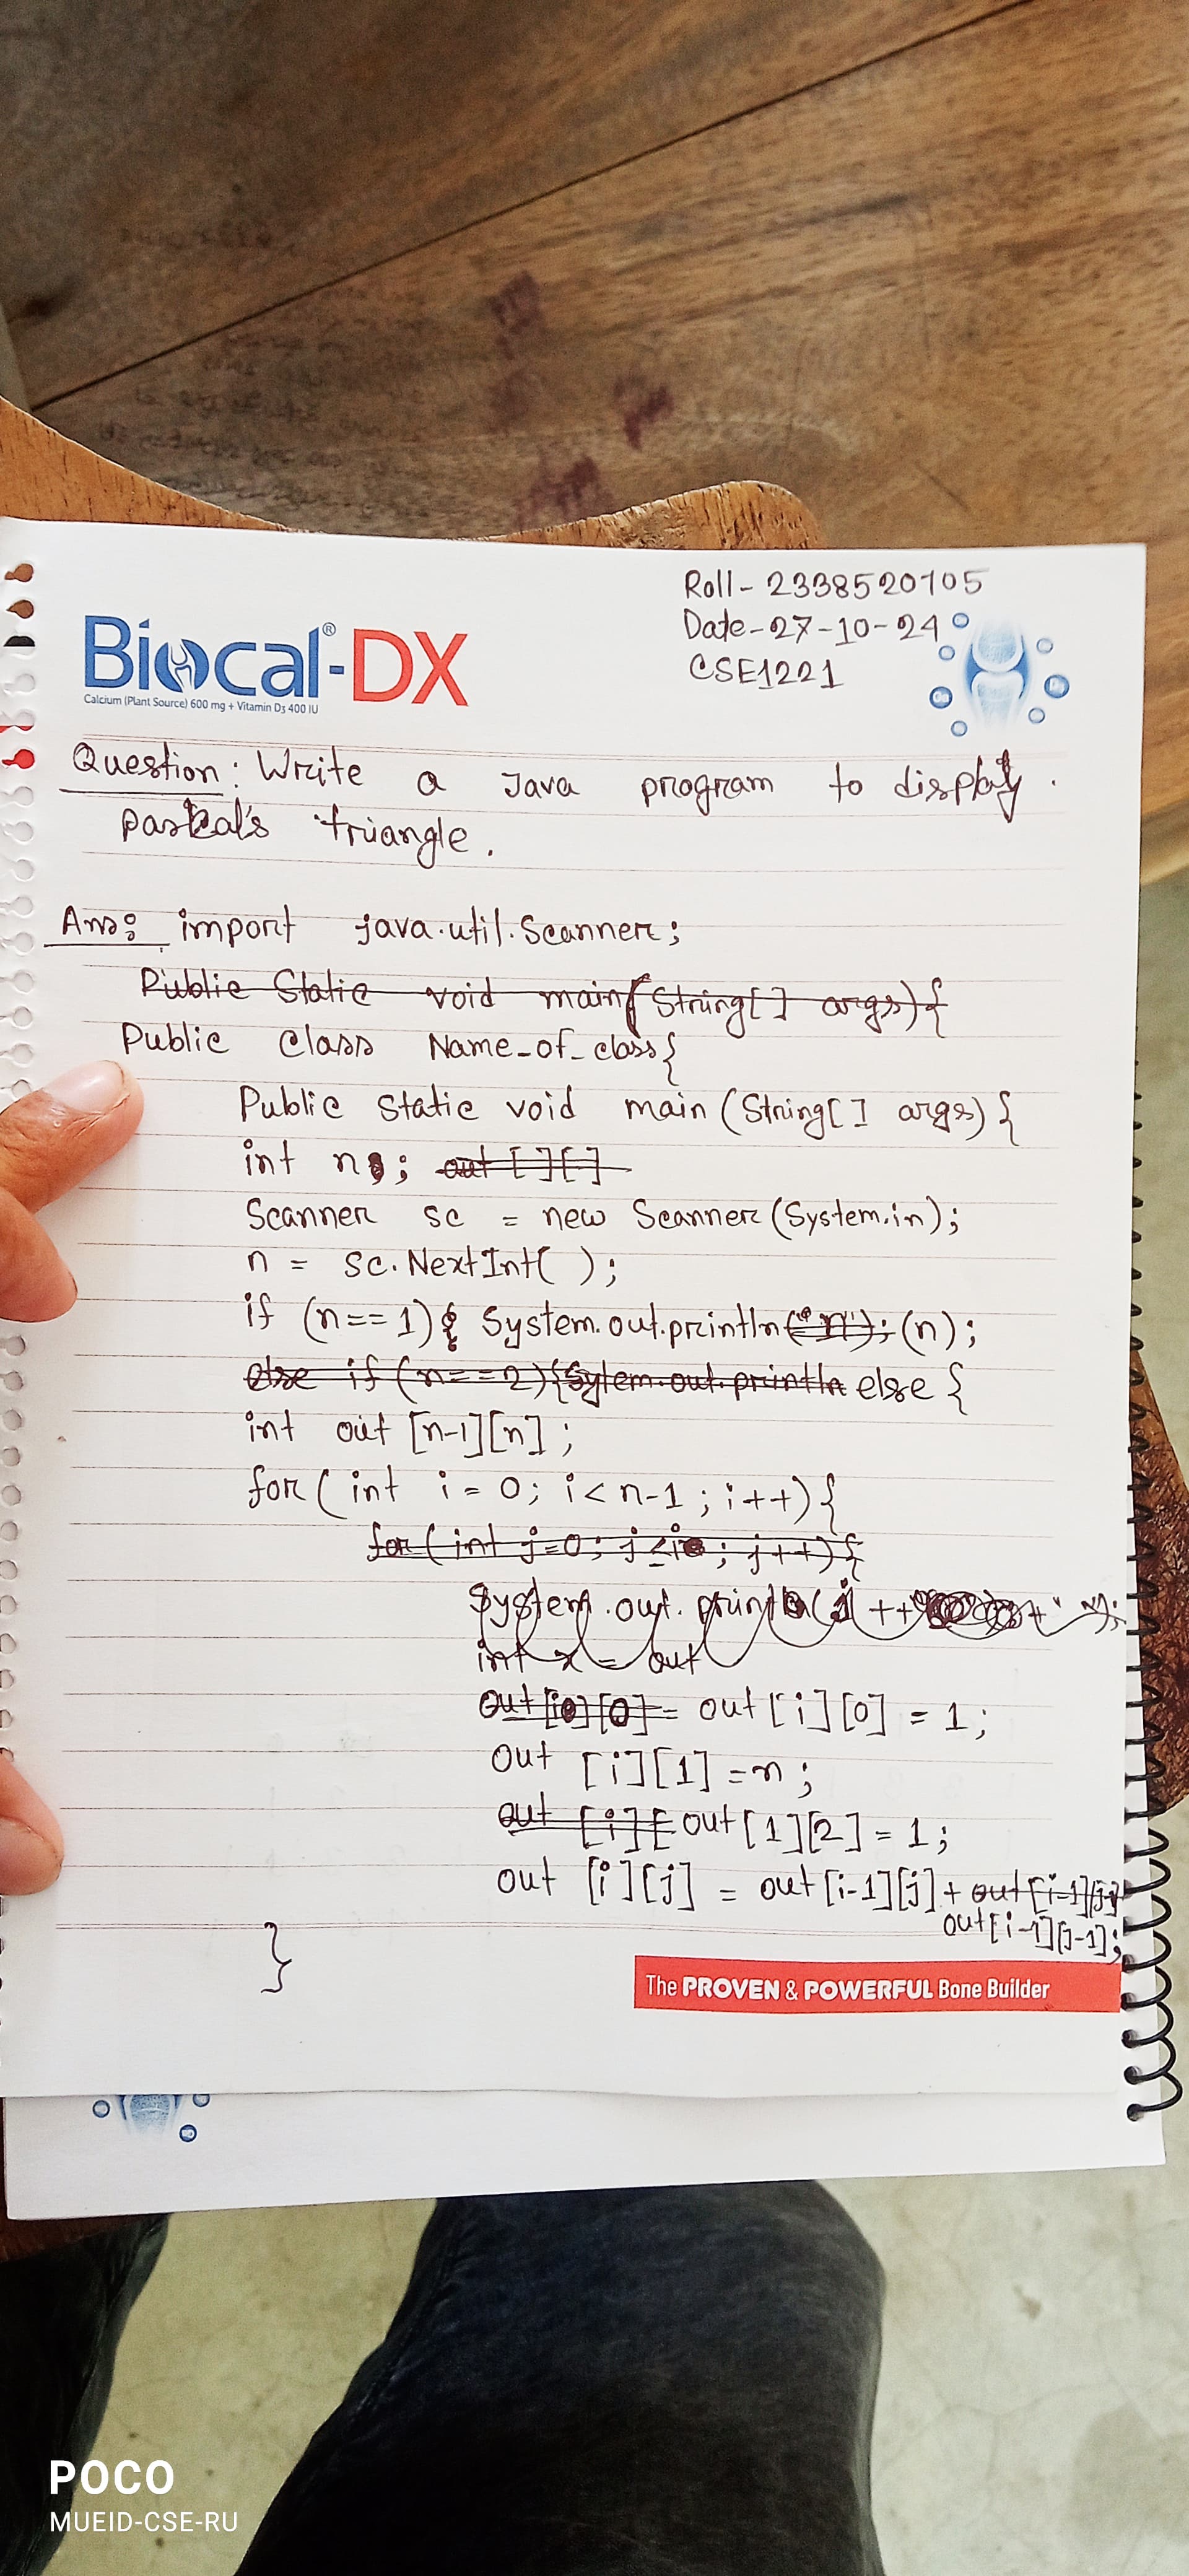 Roll - 2338520105
Date - 27-10-24
CSE1221
Biocal®-DX
Calcium (Plant Source) 600 mg + Vitamin D3 400 IU
Question: Write a Java program to display
paskal's triangle.
Ans: import java.util.Scanner;
Public Static void main(String[] args){
Public Class Name_of_class{
Public static void main (String[] args) {
int n; out [][]
Scanner sc = new Scanner (System.in);
n = sc.NextInt( );
if (n==1){ System.out.println("n"); (n);
else if (n==2){Sytem.out.println else {
int out [n-1][n];
for( int i = 0; i < n-1 ; i++) {
for ( int j=0; j<i ; j++) {
System.out.println(
int x = out
out[i0][0] = out [i][0] = 1;
out [i][1] = n;
out [i][ out [1][2] = 1;
out [i][j] = out [i-1][j] + out[i-1][j-
out[i-1][j-1];
}
The PROVEN & POWERFUL Bone Builder
POCO
MUEID-CSE-RU